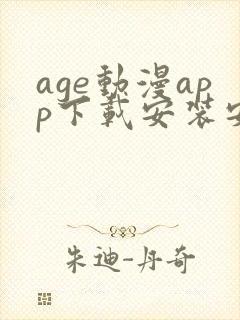 age動漫ap
p下載安裝安
朱迪-丹奇